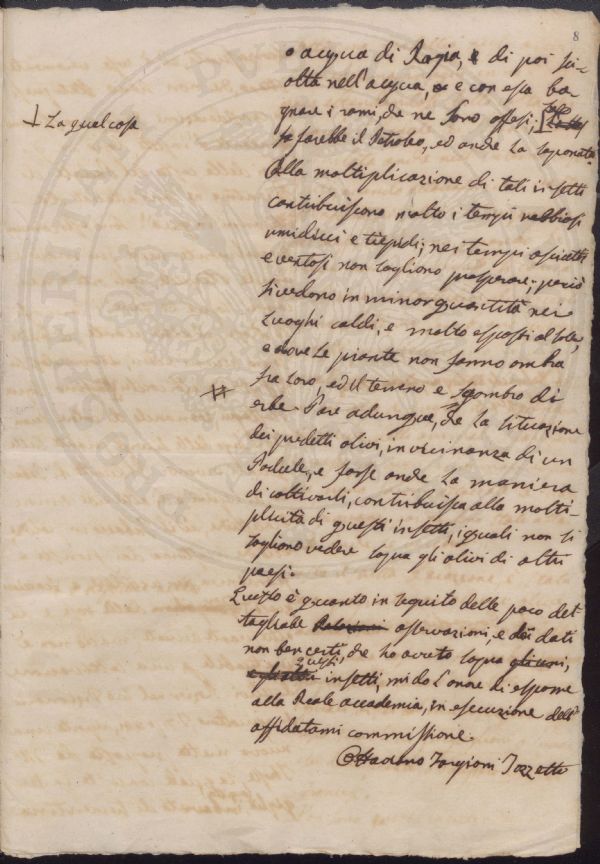 8
o acqua di Ragia, e di poi sci-
olta nell'acqua, e con essa ba-
gnare i rami, che ne sono offesi;
La qual cosa
fa farebbe il Petroleo, ed anche la saponata
Alla moltiplicazione di tali insetti
contribuiscono molto i tempi nebbiosi
umidicci e tiepidi; nei tempi asciutti
e ventosi non sogliono prosperare; perciò
si vedono in minor quantità nei
Luoghi caldi, e molto esposti al Sole,
e dove Le piante non fanno ombra
fra loro, ed il terreno è sgombro di
erbe. Pare adunque, che La situazione
dei predetti olivi, in vicinanza di un
Padule, e forse anche La maniera
di coltivarli, contribuisca alla molti-
plicità di questi insetti, i quali non si
sogliono vedere sopra gli olivi di altri
paesi.
Questo è quanto in seguito delle poco det-
tagliate Relazioni osservazioni, e dei dati
non ben certi, che ho avuto sopra gli uni,
e gli altri questi insetti, mi do L'onore di esporre
alla Reale accademia, in esecuzione dell'
affidatami commissione.
Ottaviano Targioni Tozzetti